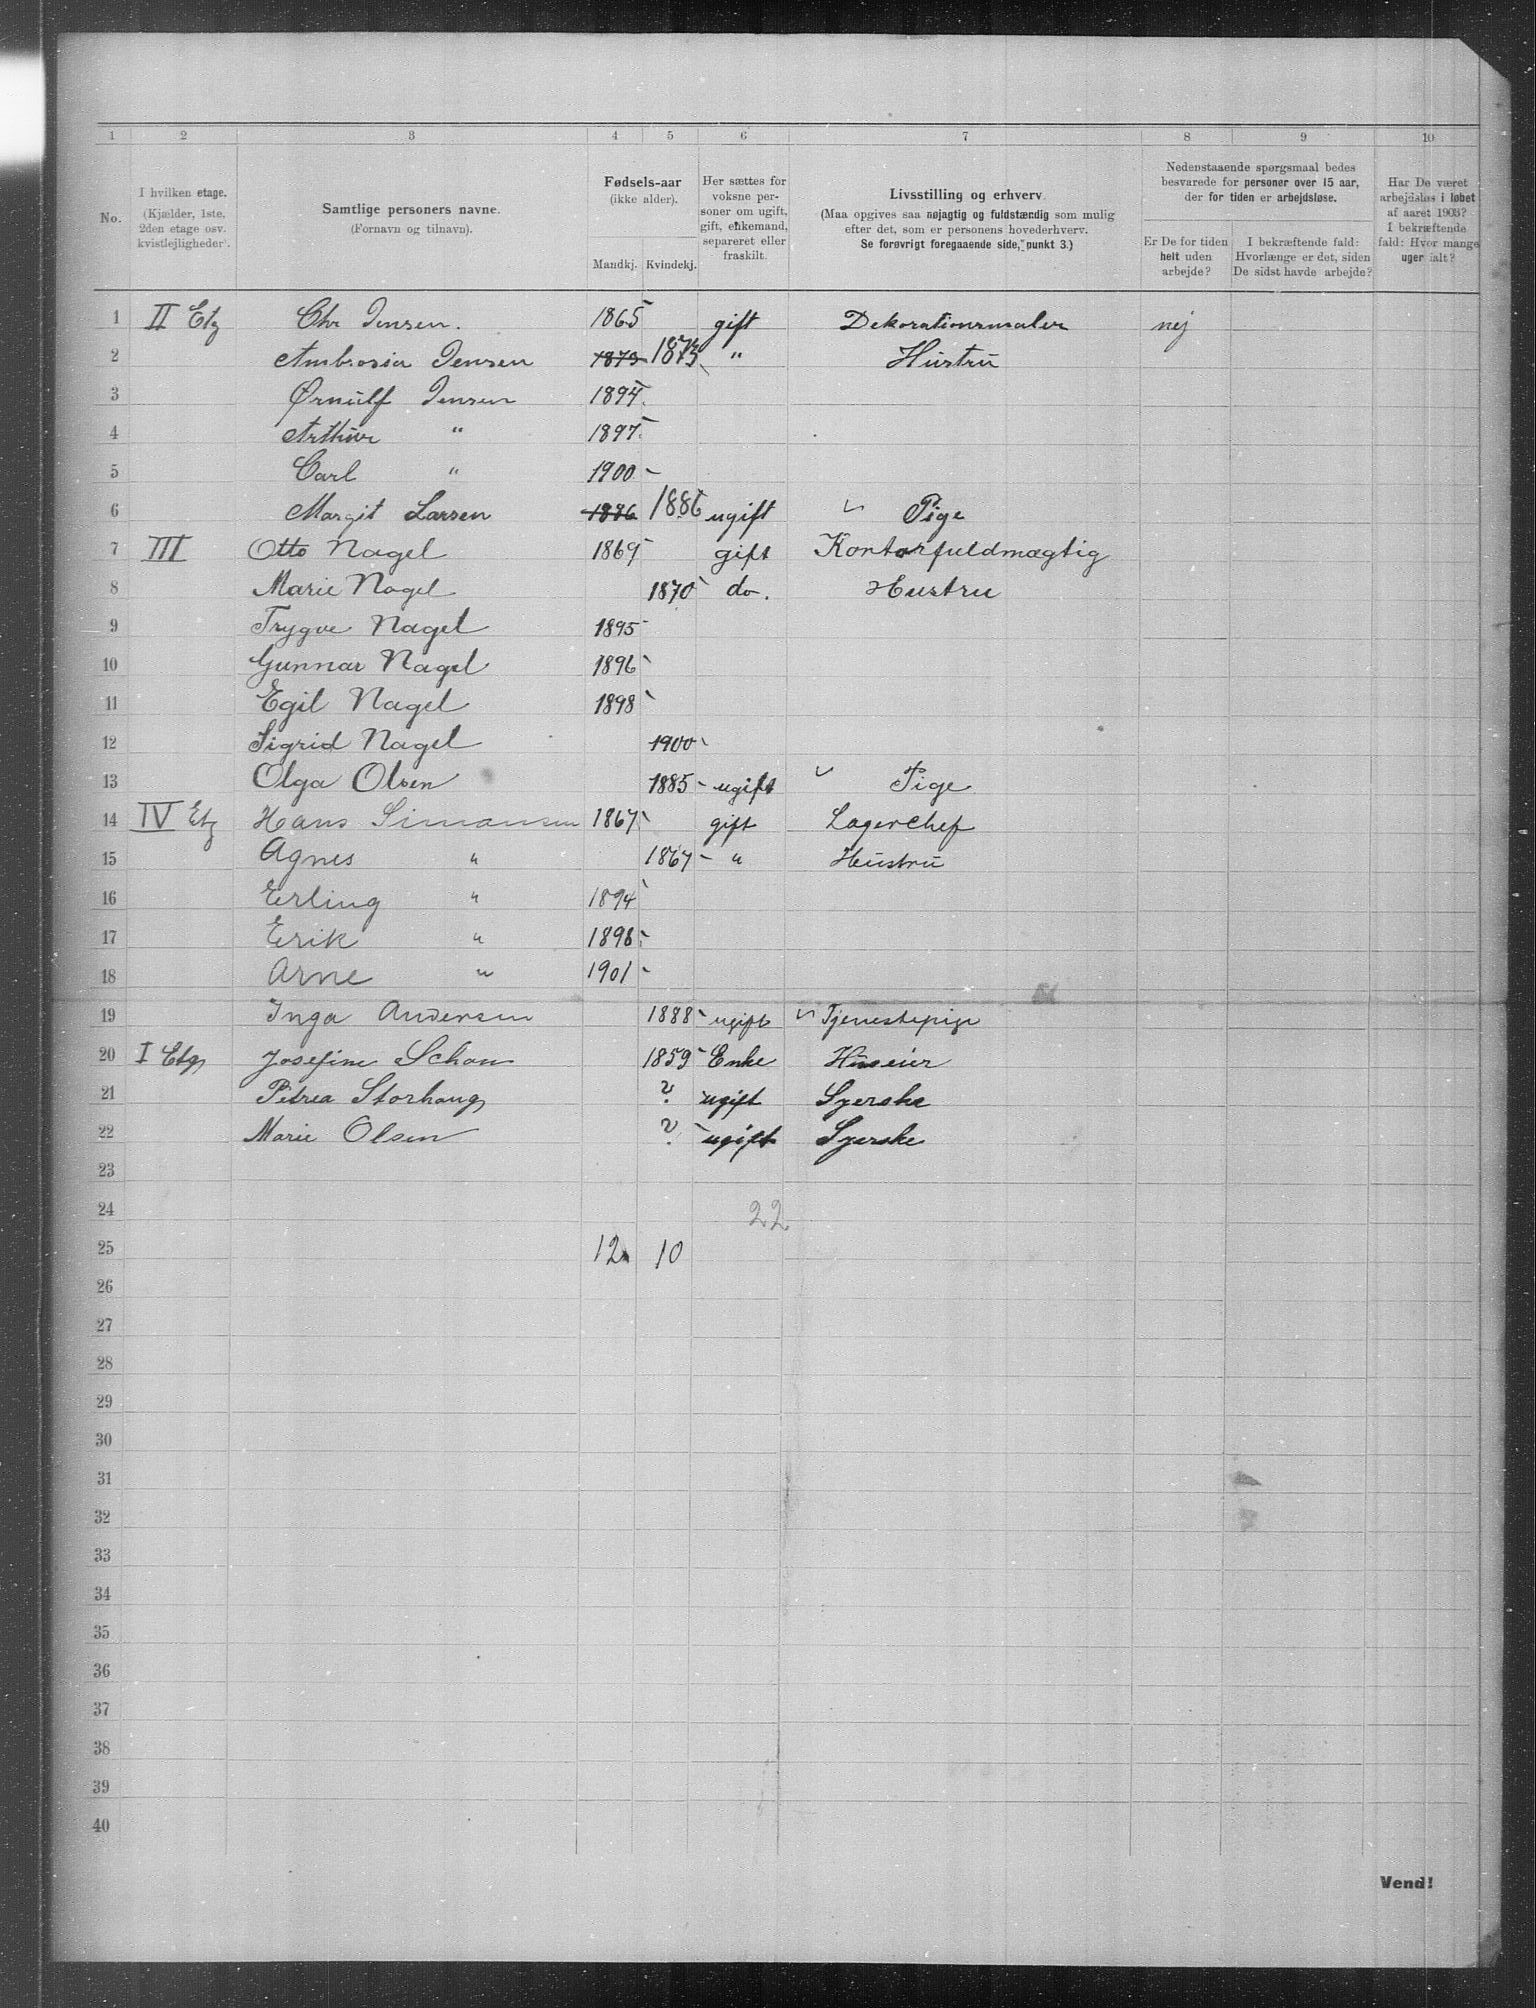 1 2 3 4 5 6 7 8 9 10
No.
I hvilken etage.
(Kjælder, 1ste,
2den etage osv.
kvistlejligheder).
Samtlige personers navne.
(Fornavn og tilnavn).
Fødsels-aar
(ikke alder).
Mandkj. Kvindekj.
Her sættes for
voksne per-
soner om ugift,
gift, enkemand,
separeret eller
fraskilt.
Livsstilling og erhverv
(Maa opgives saa nøjagtig og fuldstændig som mulig
efter det, som er personens hovederhverv.
Se forøvrigt foregaaende side, punkt 3.)
Nedenstaaende spørgsmaal bedes
besvarede for personer over 15 aar,
der for tiden er arbejdsløse.
Er De for tiden
helt uden
arbejde?
I bekræftende fald:
Hvorlænge er det, siden
De sidst havde arbejde?
Har De været
arbejdsløs i løbet
af aaret 1903?
I bekræftende
fald: Hvor mange
uger ialt?
1 II Etg Chr Jensen. 1865 gift Dekorationsmaler nej
2 Ambrosia Jensen 1873 1873 " Hustru
3 Ørnulf Jensen 1894
4 Arthur " 1897
5 Carl " 1900
6 Margit Larsen 1886 1886 ugift Pige
7 III Otto Nagel 1869 gift Kontorfuldmægtig
8 Marie Nagel 1870 do. Hustru
9 Trygve Nagel 1895
10 Gunnar Nagel 1896
11 Egil Nagel 1898
12 Sigrid Nagel 1900
13 Olga Olsen 1885 ugift Pige
14 IV Etg Hans Simonsen 1867 gift Lagerchef
15 Agnes " 1867 " Hustru
16 Erling " 1894
17 Erik " 1898
18 Arne " 1901
19 Inga Andersen 1888 ugift Tjenestepige
20 I Etg Josefine Schou 1859 Enke Huseier
21 Petrea Storhaug ? ugift Syerske
22 Marie Olsen ? ugift Syerske
23
24 22
25 12 10
26
27
28
29
30
31
32
33
34
35
36
37
38
39
40
Vend!